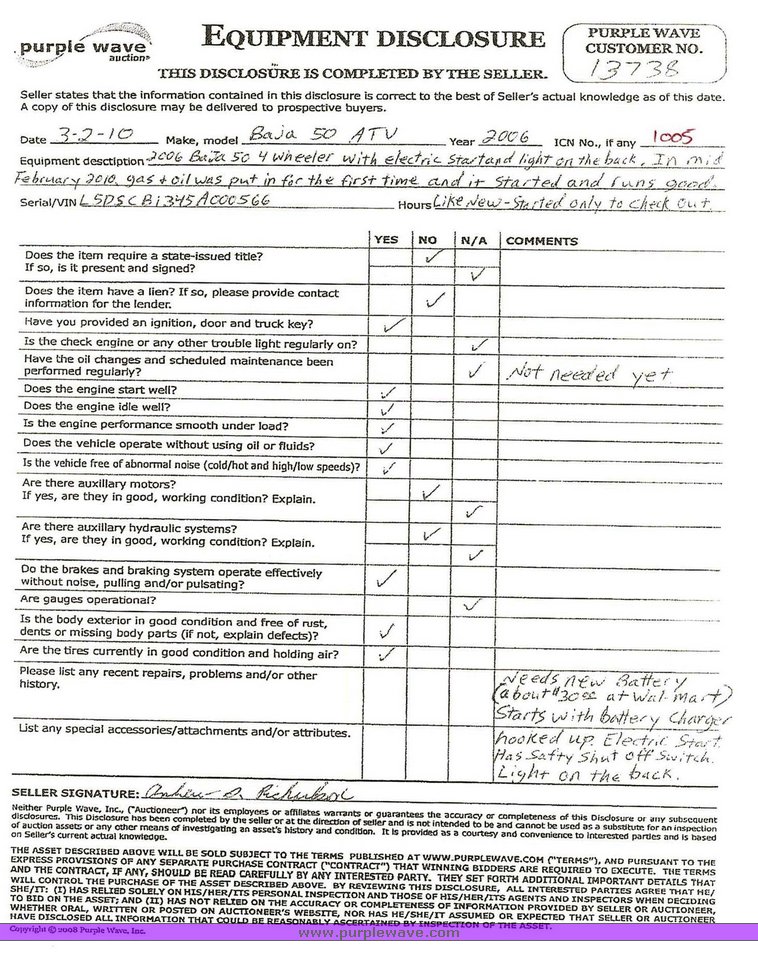 purple wave
auction
EQUIPMENT DISCLOSURE
THIS DISCLOSURE IS COMPLETED BY THE SELLER.
PURPLE WAVE
CUSTOMER NO.
13738
Seller states that the information contained in this disclosure is correct to the best of Seller's actual knowledge as of this date.
A copy of this disclosure may be delivered to prospective buyers.
Date 3-2-10 Make, model Baja 50 ATV Year 2006 ICN No., if any 1005
Equipment desctiption 2006 Baja 50 4 wheeler with electric start and light on the back. In mid
February 2010, gas + oil was put in for the first time and it started and runs good.
Serial/VIN L5DSCB1345A000566 Hours Like New - Started only to check out.
YES NO N/A COMMENTS
Does the item require a state-issued title? ✓
If so, is it present and signed? ✓
Does the item have a lien? If so, please provide contact
information for the lender. ✓
Have you provided an ignition, door and truck key? ✓
Is the check engine or any other trouble light regularly on? ✓
Have the oil changes and scheduled maintenance been
performed regularly? ✓ Not needed yet
Does the engine start well? ✓
Does the engine idle well? ✓
Is the engine performance smooth under load? ✓
Does the vehicle operate without using oil or fluids? ✓
Is the vehicle free of abnormal noise (cold/hot and high/low speeds)? ✓
Are there auxillary motors? ✓
If yes, are they in good, working condition? Explain. ✓
Are there auxillary hydraulic systems? ✓
If yes, are they in good, working condition? Explain. ✓
Do the brakes and braking system operate effectively
without noise, pulling and/or pulsating? ✓
Are gauges operational? ✓
Is the body exterior in good condition and free of rust,
dents or missing body parts (if not, explain defects)? ✓
Are the tires currently in good condition and holding air? ✓
Please list any recent repairs, problems and/or other
history.
Needs new Battery
(about $30.00 at Wal-Mart)
Starts with battery Charger
List any special accessories/attachments and/or attributes.
hooked up. Electric Start.
Has Safty Shut Off Switch.
Light on the back.
SELLER SIGNATURE:
Neither Purple Wave, Inc., ("Auctioneer") nor its employees or affiliates warrants or guarantees the accuracy or completeness of this Disclosure or any subsequent
disclosures. This Disclosure has been completed by the seller or at the direction of seller and is not intended to be and cannot be used as a substitute for an inspection
of auction assets or any other means of investigating an asset's history and condition. It is provided as a courtesy and convenience to interested parties and is based
on Seller's current actual knowledge.
THE ASSET DESCRIBED ABOVE WILL BE SOLD SUBJECT TO THE TERMS PUBLISHED AT WWW.PURPLEWAVE.COM ("TERMS"), AND PURSUANT TO THE
EXPRESS PROVISIONS OF ANY SEPARATE PURCHASE CONTRACT ("CONTRACT") THAT WINNING BIDDERS ARE REQUIRED TO EXECUTE. THE TERMS
AND THE CONTRACT, IF ANY, SHOULD BE READ CAREFULLY BY ANY INTERESTED PARTY. THEY SET FORTH ADDITIONAL IMPORTANT DETAILS THAT
WILL CONTROL THE PURCHASE OF THE ASSET DESCRIBED ABOVE. BY REVIEWING THIS DISCLOSURE, ALL INTERESTED PARTIES AGREE THAT HE/
SHE/IT: (I) HAS RELIED SOLELY ON HIS/HER/ITS PERSONAL INSPECTION AND THOSE OF HIS/HER/ITS AGENTS AND INSPECTORS WHEN DECIDING
TO BID ON THE ASSET; AND (II) HAS NOT RELIED ON THE ACCURACY OR COMPLETENESS OF INFORMATION PROVIDED BY SELLER OR AUCTIONEER,
WHETHER ORAL, WRITTEN OR POSTED ON AUCTIONEER'S WEBSITE, NOR HAS HE/SHE/IT ASSUMED OR EXPECTED THAT SELLER OR AUCTIONEER
HAVE DISCLOSED ALL INFORMATION THAT COULD BE REASONABLY ASCERTAINED BY INSPECTION OF THE ASSET.
Copyright © 2008 Purple Wave, Inc.
www.purplewave.com